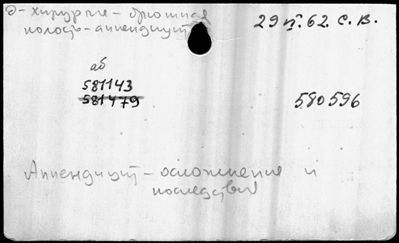 д-хирургия-брюшная
полость-аппендицит
29 VI. 62. С. В.
аб
581143
581479
580596
Аппендицит-осложнения и
последствия